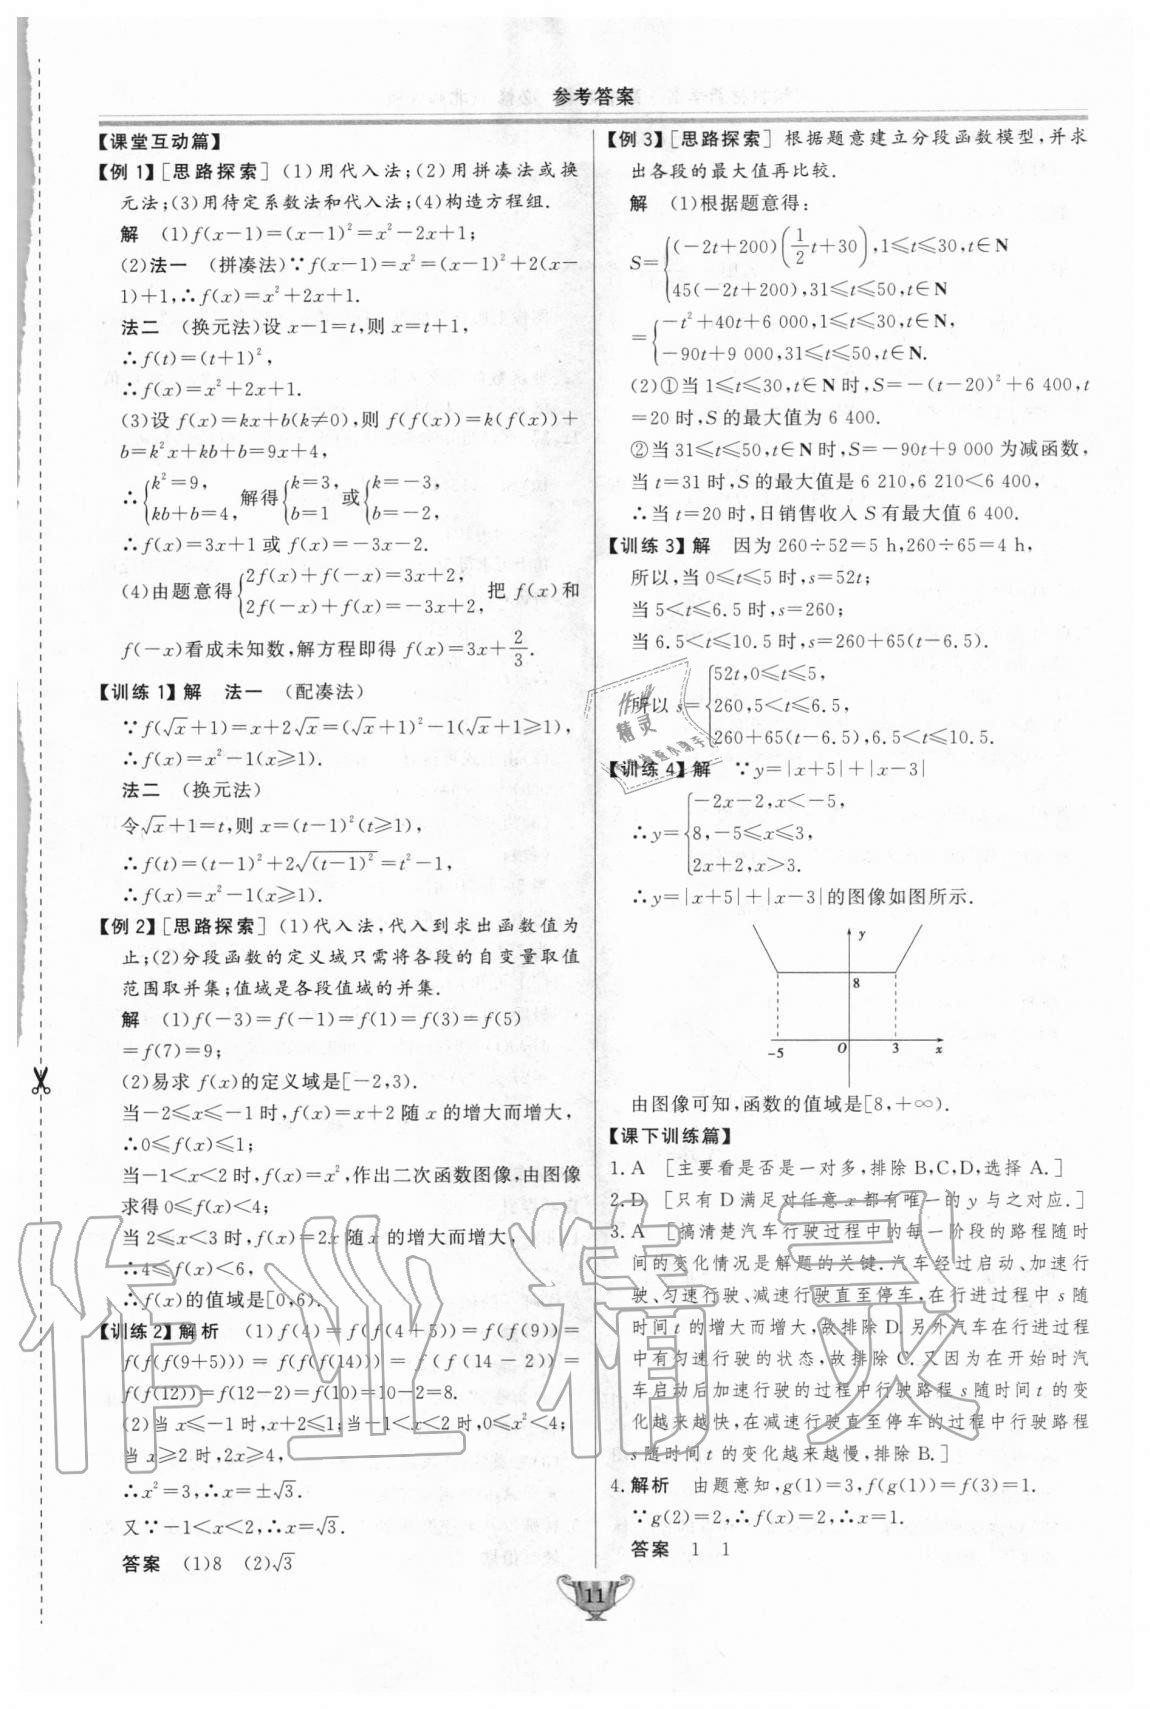 参考答案
【课堂互动篇】
【例 1】[思路探索] (1)用代入法;(2)用拼凑法或换
元法;(3)用待定系数法和代入法;(4)构造方程组.
解 (1)f(x-1)=(x-1)²=x²-2x+1;
(2)法一 (拼凑法)∵f(x-1)=x²=(x-1)²+2(x-
1)+1,∴f(x)=x²+2x+1.
法二 (换元法)设 x-1=t,则 x=t+1,
∴f(t)=(t+1)²,
∴f(x)=x²+2x+1.
(3)设 f(x)=kx+b(k≠0),则 f(f(x))=k(f(x))+
b=k²x+kb+b=9x+4,
∴{k²=9, kb+b=4, 解得{k=3, b=1 或{k=-3, b=-2,
∴f(x)=3x+1 或 f(x)=-3x-2.
(4)由题意得{2f(x)+f(-x)=3x+2, 2f(-x)+f(x)=-3x+2, 把 f(x)和
f(-x)看成未知数,解方程即得 f(x)=3x+2/3.
【训练 1】解 法一 (配凑法)
∵f(√x+1)=x+2√x=(√x+1)²-1(√x+1≥1),
∴f(x)=x²-1(x≥1).
法二 (换元法)
令√x+1=t,则 x=(t-1)²(t≥1),
∴f(t)=(t-1)²+2√(t-1)²=t²-1,
∴f(x)=x²-1(x≥1).
【例 2】[思路探索] (1)代入法,代入到求出函数值为
止;(2)分段函数的定义域只需将各段的自变量取值
范围取并集;值域是各段值域的并集.
解 (1)f(-3)=f(-1)=f(1)=f(3)=f(5)
=f(7)=9;
(2)易求 f(x)的定义域是[-2,3).
当-2≤x≤-1 时,f(x)=x+2 随 x 的增大而增大,
∴0≤f(x)≤1;
当-1<x<2时,f(x)=x²,作出二次函数图像,由图像
求得 0≤f(x)<4;
当 2≤x<3 时,f(x)=2x 随 x 的增大而增大,
∴4≤f(x)<6,
∴f(x)的值域是[0,6).
【训练 2】解析 (1)f(4)=f(f(4+5))=f(f(9))=
f(f(f(9+5)))=f(f(f(14)))=f(f(14-2))=
f(f(12))=f(12-2)=f(10)=10-2=8.
(2)当 x≤-1 时,x+2≤1;当-1<x<2 时,0≤x²<4;
当 x≥2 时,2x≥4,
∴x²=3,∴x=±√3.
又∵-1<x<2,∴x=√3.
答案 (1)8 (2)√3
【例 3】[思路探索] 根据题意建立分段函数模型,并求
出各段的最大值再比较.
解 (1)根据题意得:
S={(-2t+200)(1/2 t+30),1≤t≤30,t∈N
45(-2t+200),31≤t≤50,t∈N
={-t²+40t+6 000,1≤t≤30,t∈N,
-90t+9 000,31≤t≤50,t∈N.
(2)①当 1≤t≤30,t∈N 时,S=-(t-20)²+6 400,t
=20 时,S 的最大值为 6 400.
②当 31≤t≤50,t∈N时,S=-90t+9 000 为减函数,
当 t=31 时,S 的最大值是 6 210,6 210<6 400,
∴当 t=20 时,日销售收入 S 有最大值 6 400.
【训练 3】解 因为 260÷52=5 h,260÷65=4 h,
所以,当 0≤t≤5 时,s=52t;
当 5<t≤6.5 时,s=260;
当 6.5<t≤10.5 时,s=260+65(t-6.5).
所以 s={52t,0≤t≤5,
260,5<t≤6.5,
260+65(t-6.5),6.5<t≤10.5.
【训练 4】解 ∵y=|x+5|+|x-3|
∴y={-2x-2,x<-5,
8,-5≤x≤3,
2x+2,x>3.
∴y=|x+5|+|x-3|的图像如图所示.
y
8
-5 O 3 x
由图像可知,函数的值域是[8,+∞).
【课下训练篇】
1. A [主要看是否是一对多,排除 B,C,D,选择 A.]
2. D [只有 D 满足对任意 x 都有唯一的 y 与之对应.]
3. A [搞清楚汽车行驶过程中的每一阶段的路程随时
间的变化情况是解题的关键.汽车经过启动、加速行
驶、匀速行驶、减速行驶直至停车,在行进过程中 s 随
时间 t 的增大而增大,故排除 D.另外汽车在行进过程
中有匀速行驶的状态,故排除 C.又因为在开始时汽
车启动后加速行驶的过程中行驶路程 s 随时间 t 的变
化越来越快,在减速行驶直至停车的过程中行驶路程
s 随时间 t 的变化越来越慢,排除 B.]
4. 解析 由题意知,g(1)=3,f(g(1))=f(3)=1.
∵g(2)=2,∴f(x)=2,∴x=1.
答案 1 1
11
作业精灵
作业
精灵